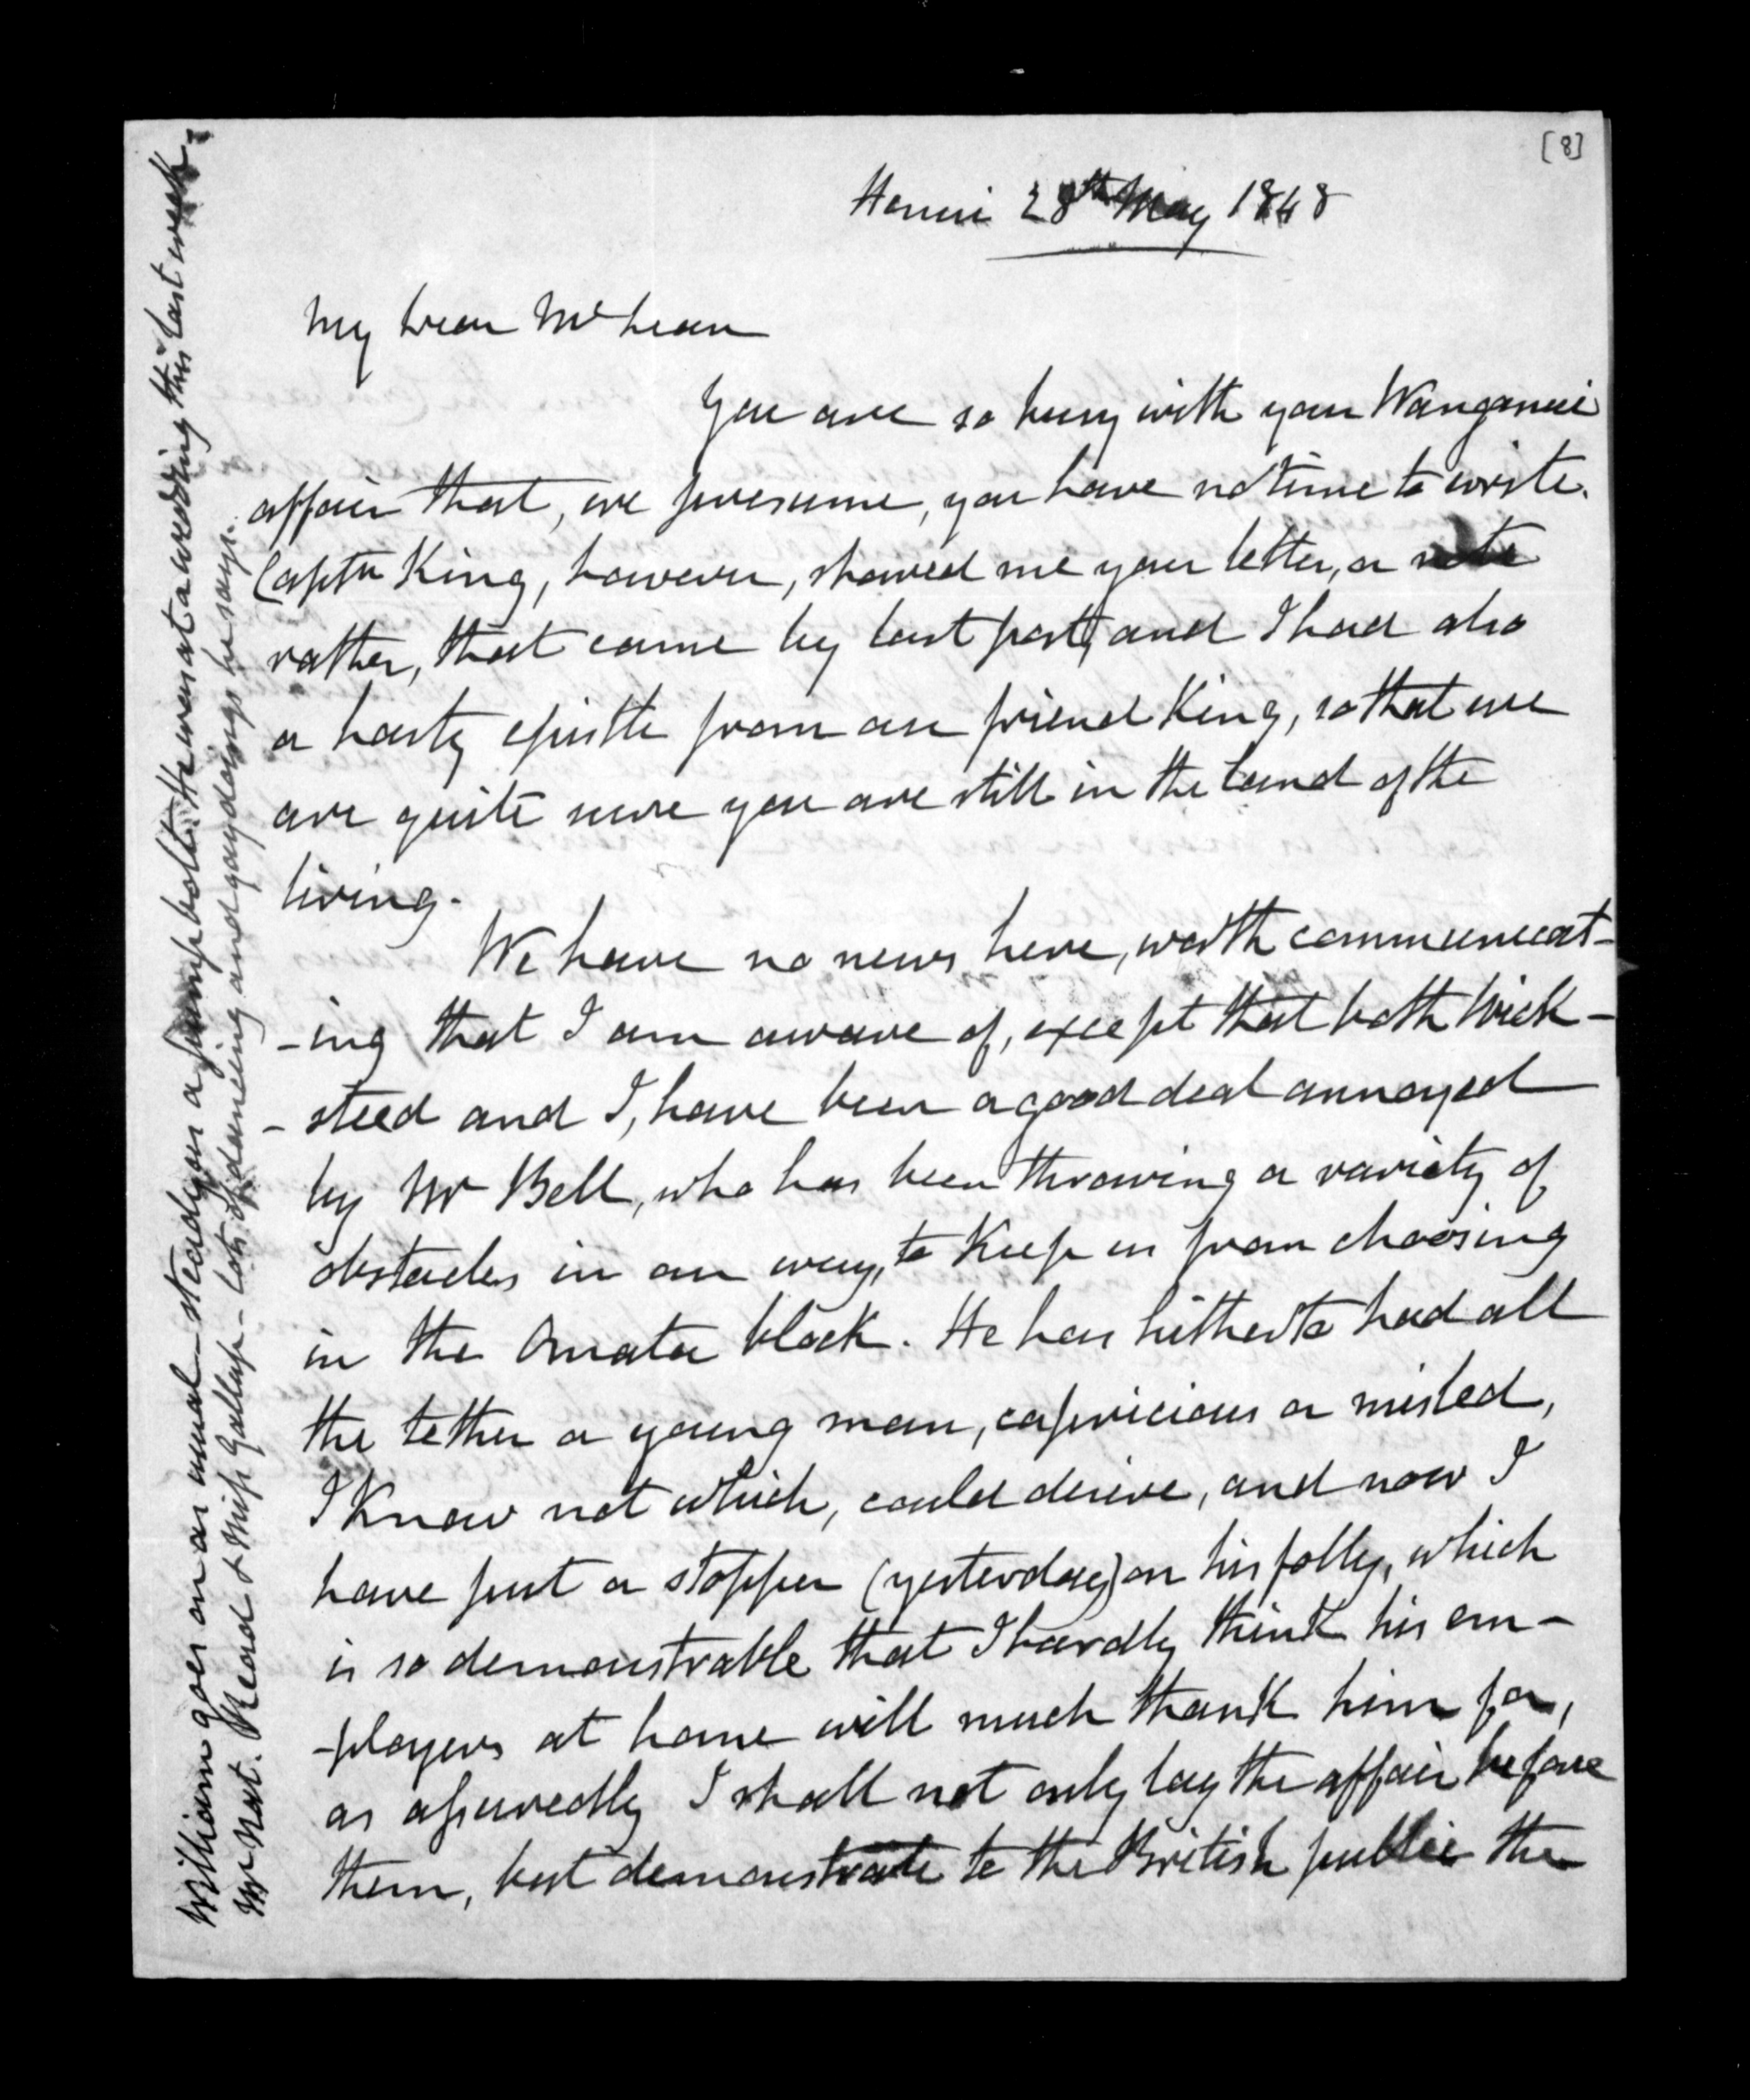 [8]
Henui 28th May 1848
My Dear McLean
You are so busy with your Wanganui
affair that, we presume, you have no time to write.
Captn King, however, showed me your letter, or note
rather, that came by last post, and I had also
a hasty epistle from our friend King, so that we
are quite sure you are still in the land of the
living.
We have no news here, worth communicat-
-ing that I am aware of, except that both Wick-
-steed and I, have been a good deal annoyed
by Mr Bell, who has been throwing a variety of
obstacles in our way, to keep us from choosing
in the Omata block. He has hitherto had all
the tether a young man, capricious or misled,
I know not which, could desire, and now I
have put a stopper (yesterday) on his folly, which
is so demonstrable that I hardly think his em-
-ployers at home will much thank him for,
as assuredly I shall not only lay the affair before
them, but demonstrate to the British public the
William goes on as usual - steady as a pump bolt. He was at a wedding this last week -
Mr Nat. Read & Miss Gallop - lots of dancing and gay doings he says.